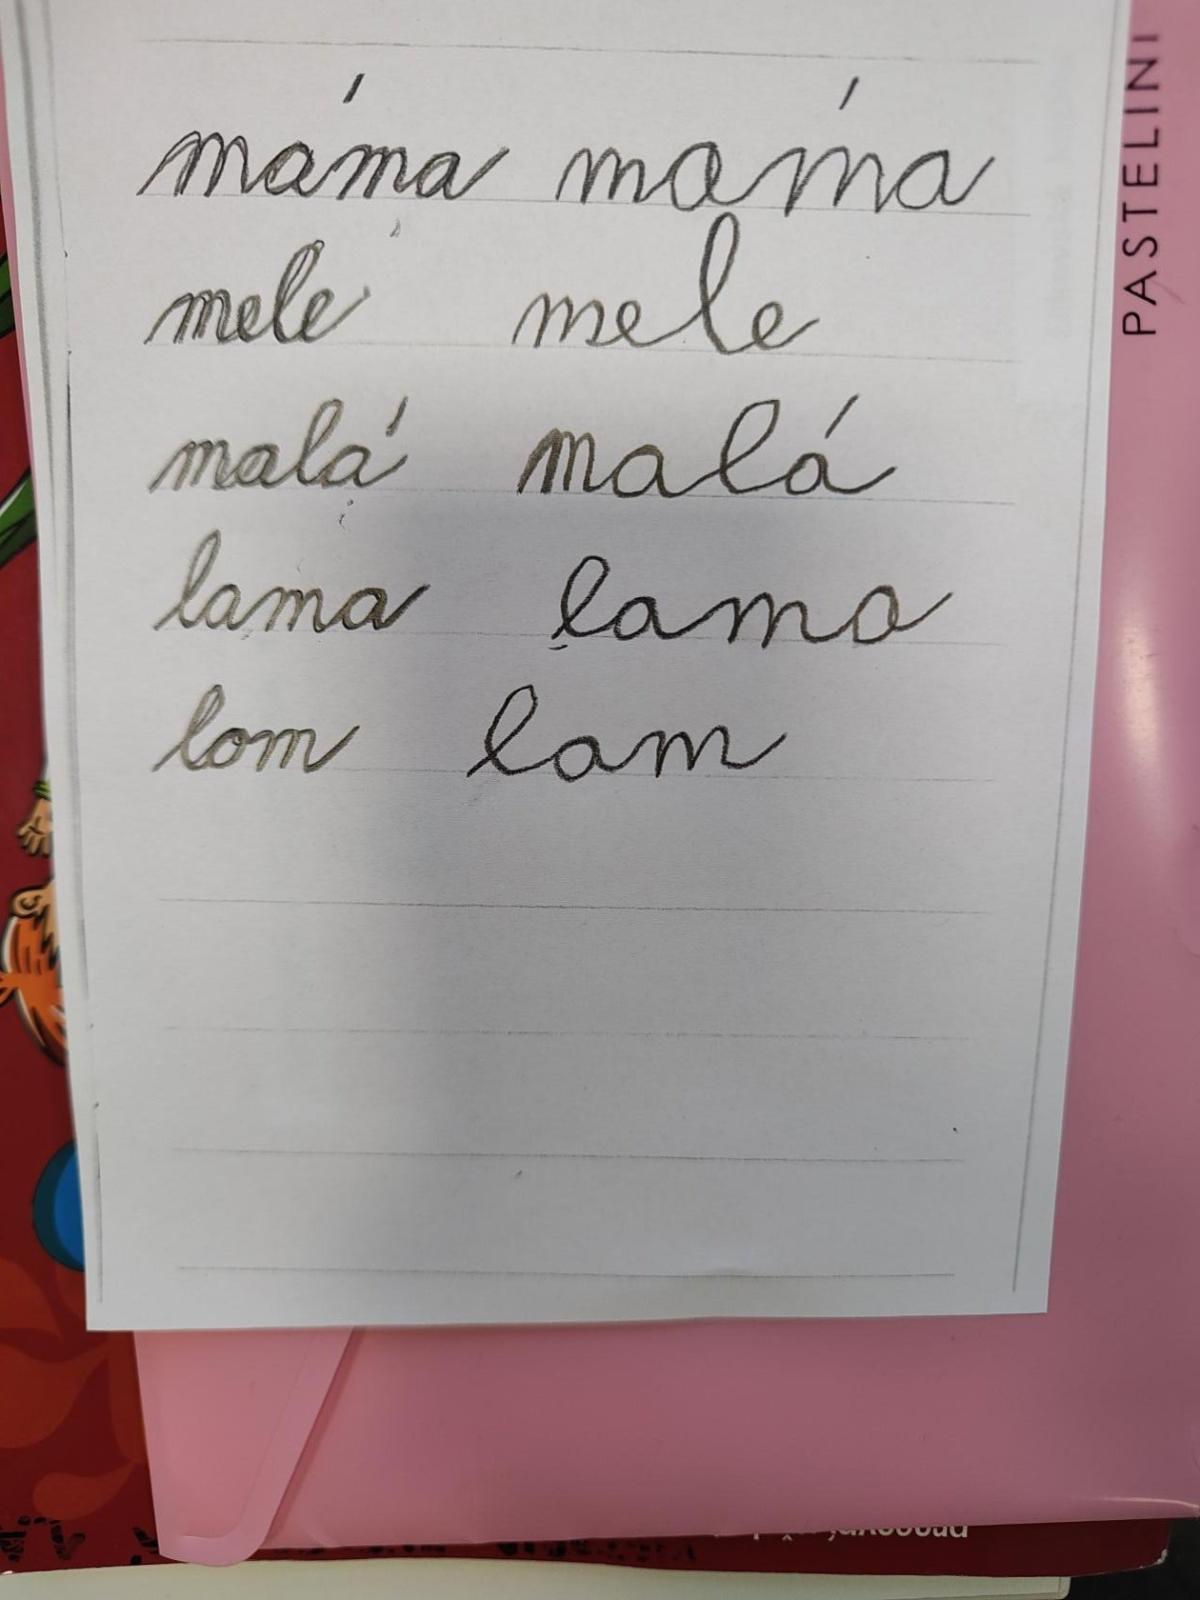 máma máma
mele mele
malá malá
lama lama
lom lam
PASTELINI